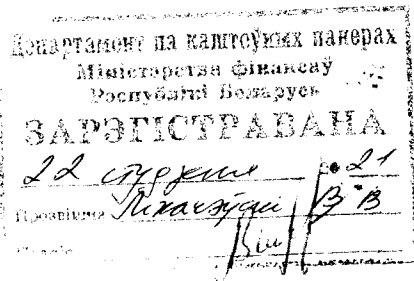 Дэпартамент па каштоўных паперах
Міністэрства фінансаў
Рэспублікі Беларусь
ЗАРЭГІСТРАВАНА
22 студзеня 2021
Прозвішча Ліхачэўскі В В